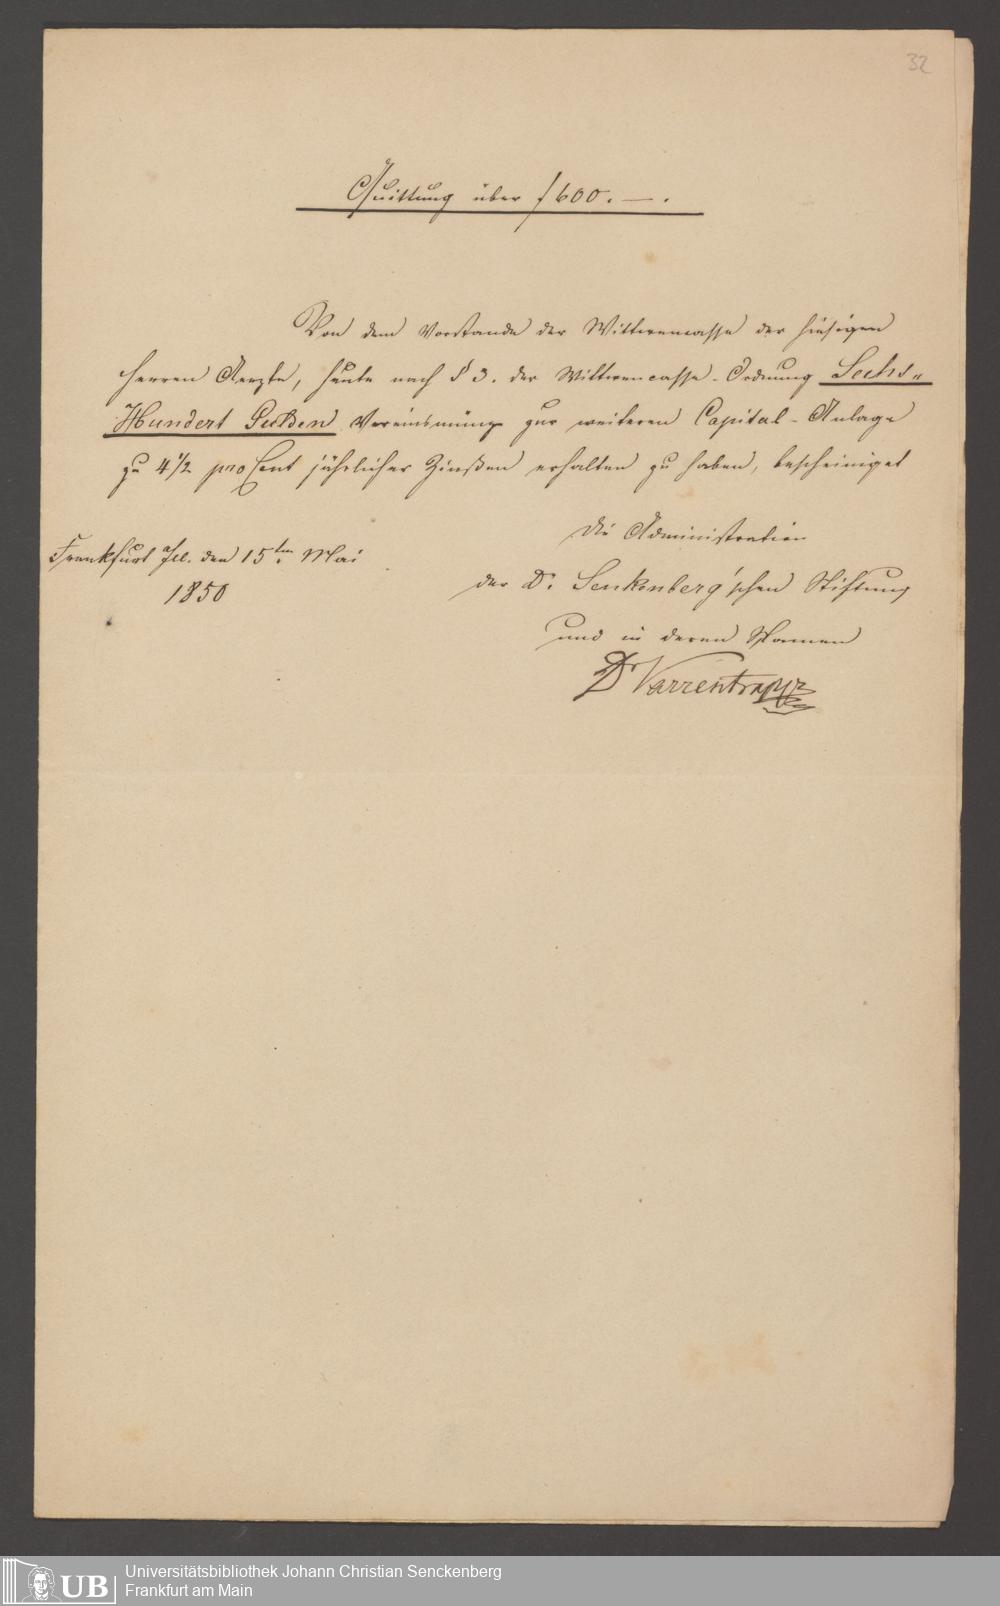 32
Quittung über f 600. — .
Von dem Vorstande der Wittwencasse der hiesigen
Herren Aerzte, heute nach § 3. der Wittwencasse-Ordnung Sechs„
Hundert Gulden Vereinsmünz zur weiteren Capital-Anlage
zu 4 1/2 pro Cent jährlicher Zinßen erhalten zu haben, bescheiniget
Frankfurt a/M. den 15ten Mai
1850
Die Administration
der Dr. Senkenberg'schen Stiftung
und in deren Namen
Dr Varrentrapp
UB
Universitätsbibliothek Johann Christian Senckenberg
Frankfurt am Main